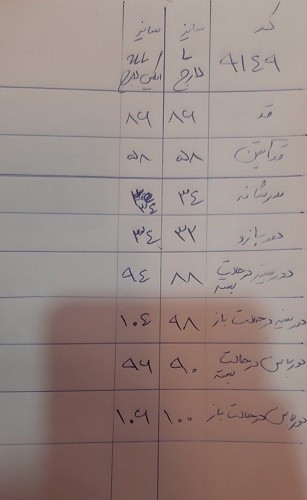 کد سایز سایز
۹۱۴۹ L
لارج
قد ۸۶ ۸۶
قد آستین ۵۸ ۵۸
سرشانه ۳۴ ۳۴
دور بازو ۳۲ ۳۴
دور سینه در حالت بسته ۸۸ ۹۴
دور سینه در حالت باز ۹۸ ۱۰۴
دور باسن در حالت بسته ۹۰ ۹۶
دور باسن در حالت باز ۱۰۰ ۱۰۶